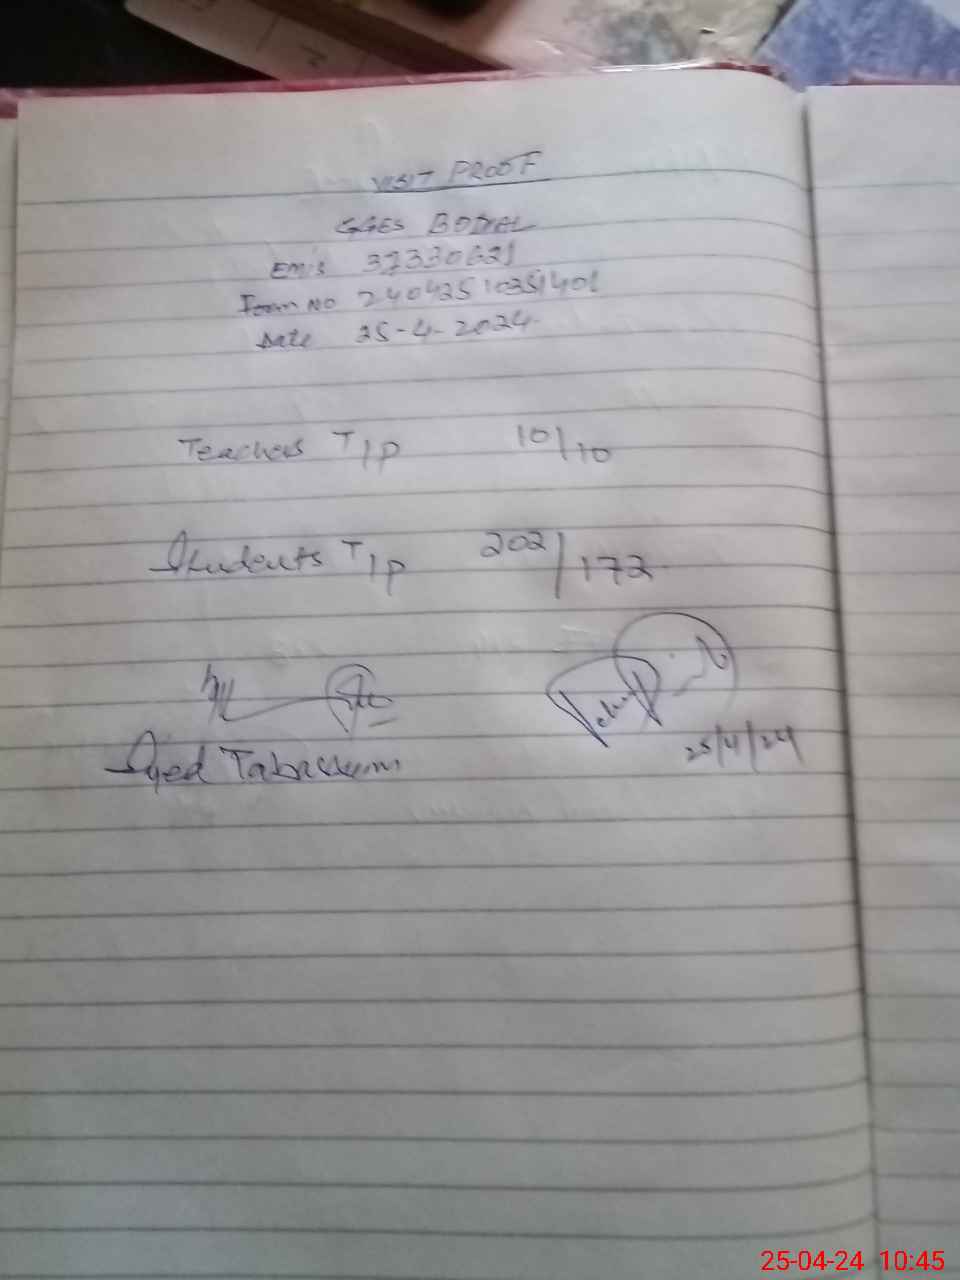 VISIT PROOF
GGES BODIAL
Emis 37330621
Form NO 24042510351401
Date 25-4-2024
Teachers T/P 10/10
Students T/P 202/172
Syed Tabassum
25/4/24
25-04-24 10:45